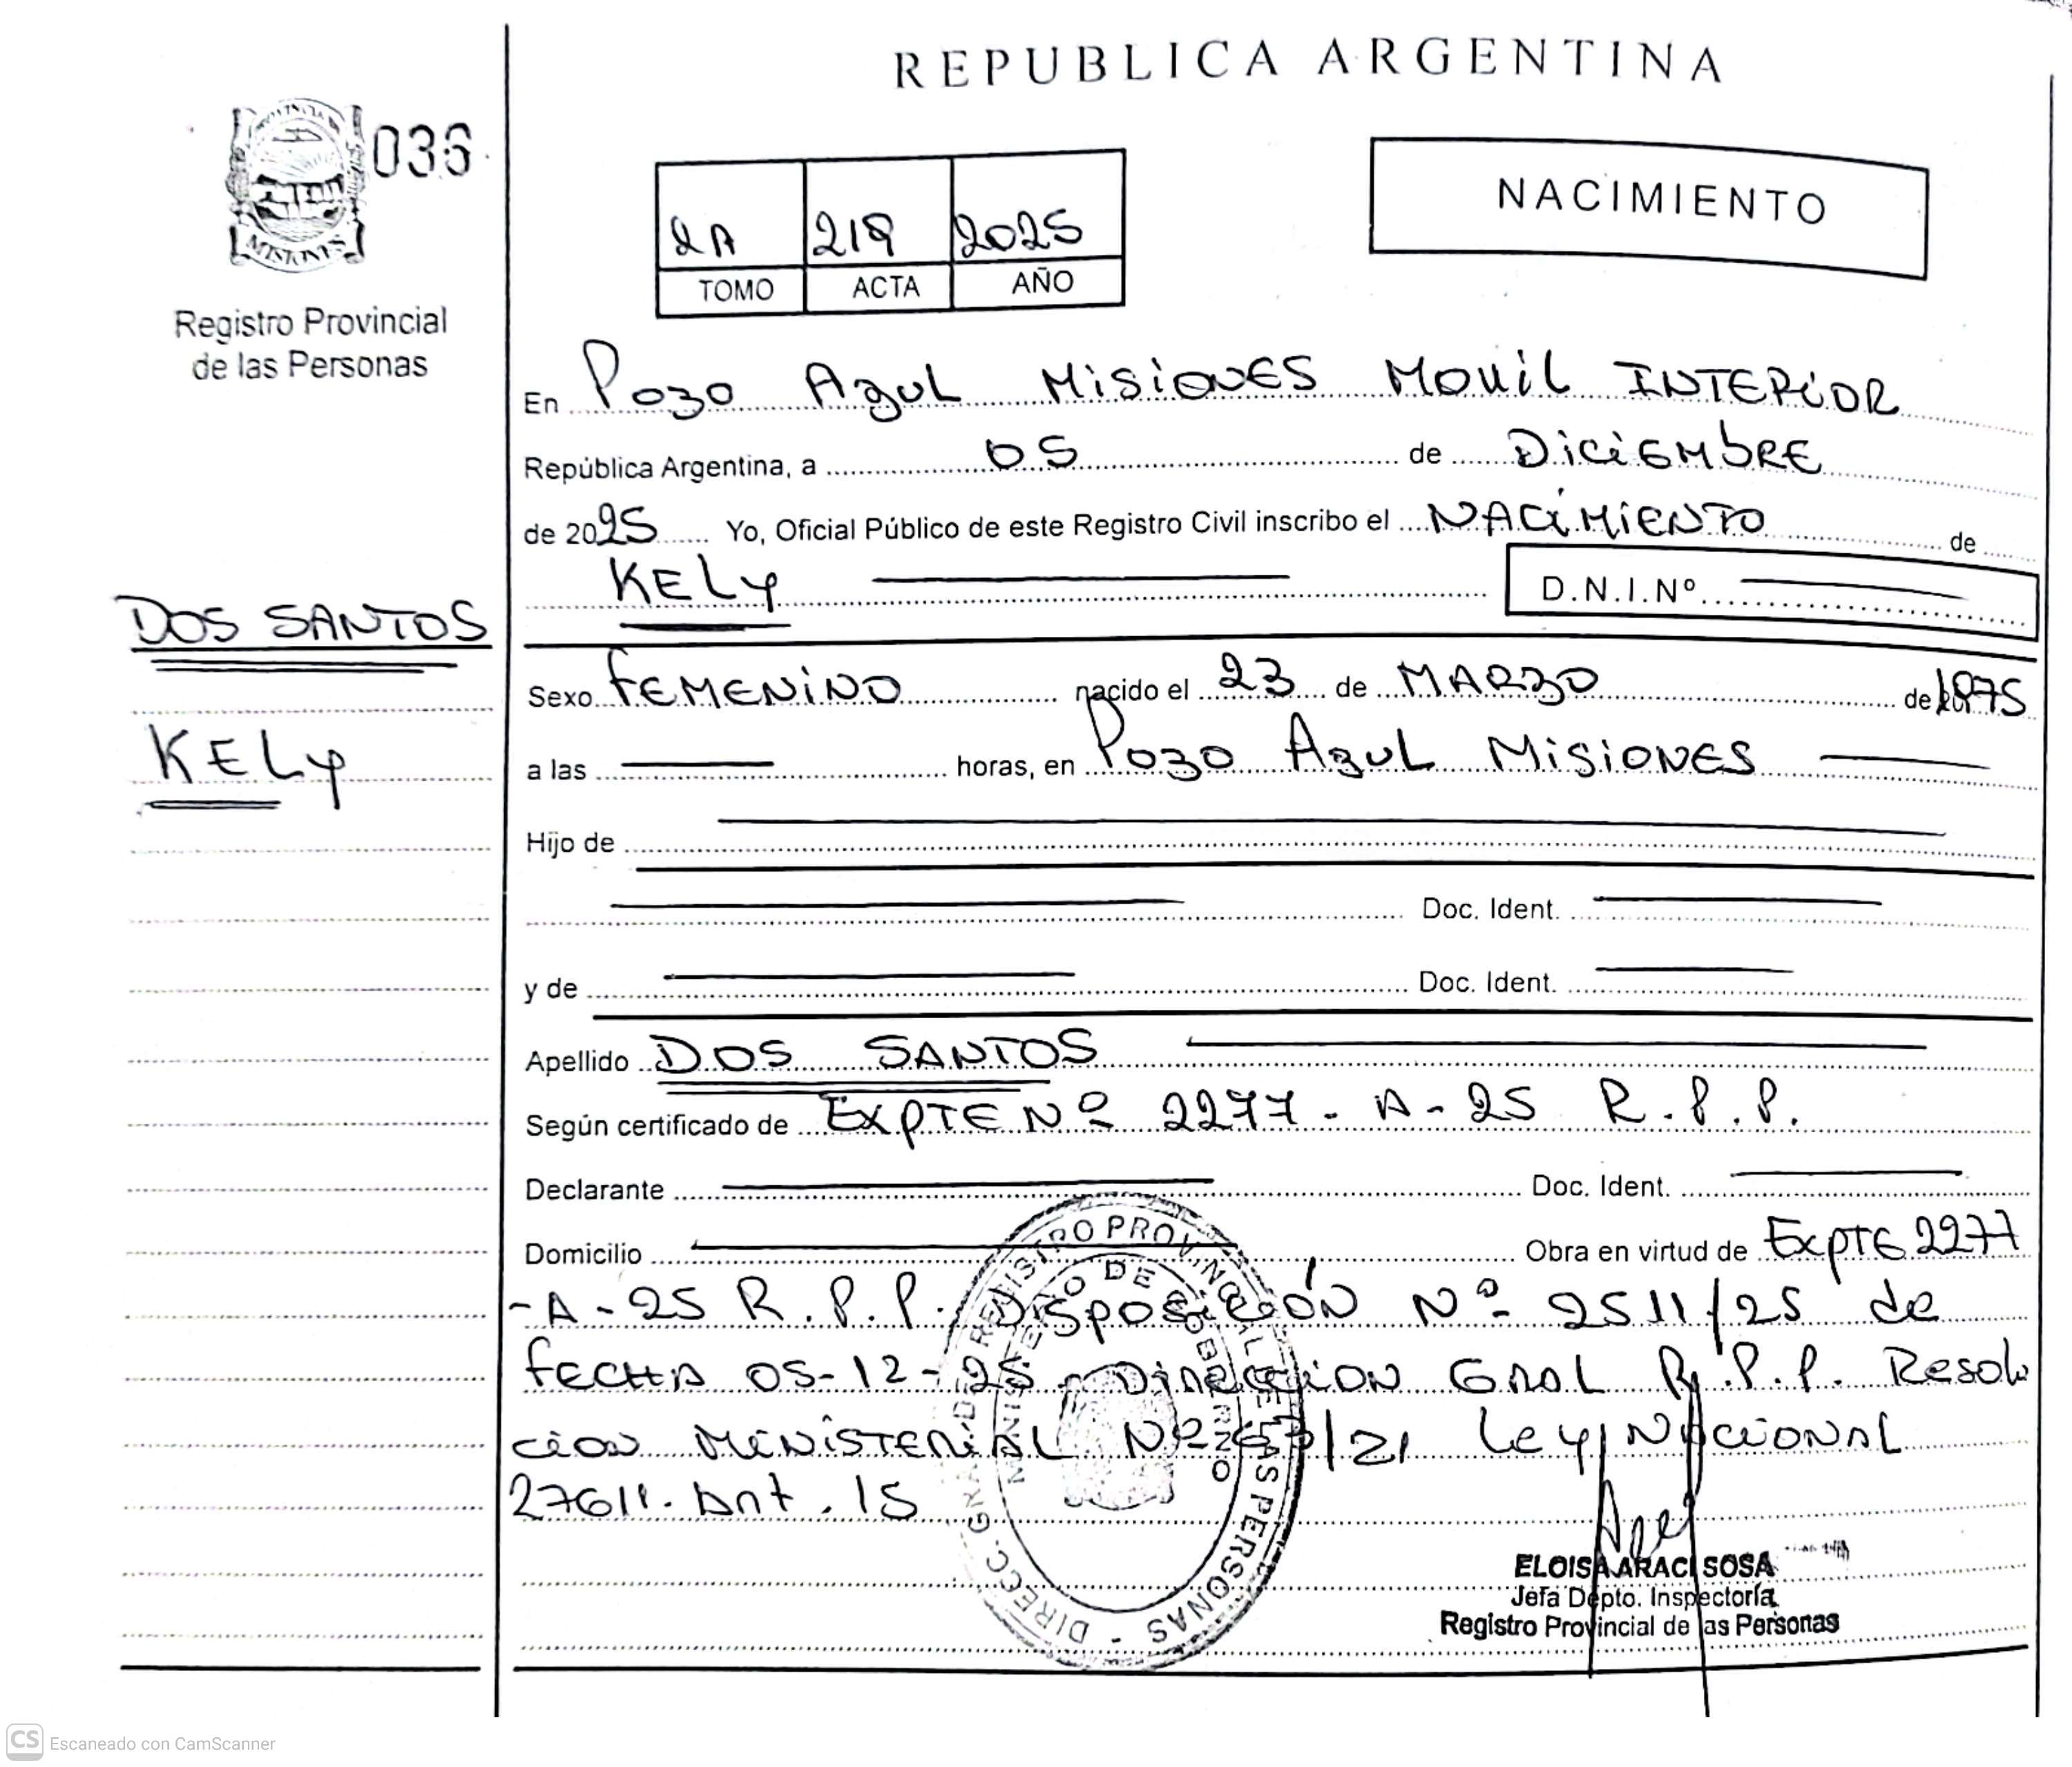 REPUBLICA ARGENTINA
PROVINCIA DE
MISIONES
036
Registro Provincial
de las Personas
NACIMIENTO
2A 219 2025
TOMO ACTA AÑO
En Pozo Azul Misiones Movil Interior
República Argentina, a 05 de Diciembre
de 2025 Yo, Oficial Público de este Registro Civil inscribo el Nacimiento de
Kely D.N.I.Nº
DOS SANTOS
Kely
Sexo Femenino nacido el 23 de Marzo de 1975
a las horas, en Pozo Azul Misiones
Hijo de
Doc. Ident.
y de Doc. Ident.
Apellido DOS SANTOS
Según certificado de Expte Nº 2277-A-25 R.P.P.
Declarante Doc. Ident.
Domicilio Obra en virtud de Expte 2277
-A-25 R.P.P. Disposición Nº 2511/25 de
fecha 05-12-25 Direccion Gral R.P.P. Resolu
cion Ministerial Nº /21 Ley Nacional
27611. Art. 15
DIRECC. GRAL. DE REGISTRO PROVINCIAL DE LAS PERSONAS
MINISTERIO DE GOBIERNO
ELOISA ARACI SOSA
Jefa Depto. Inspectoría
Registro Provincial de las Personas
CS Escaneado con CamScanner